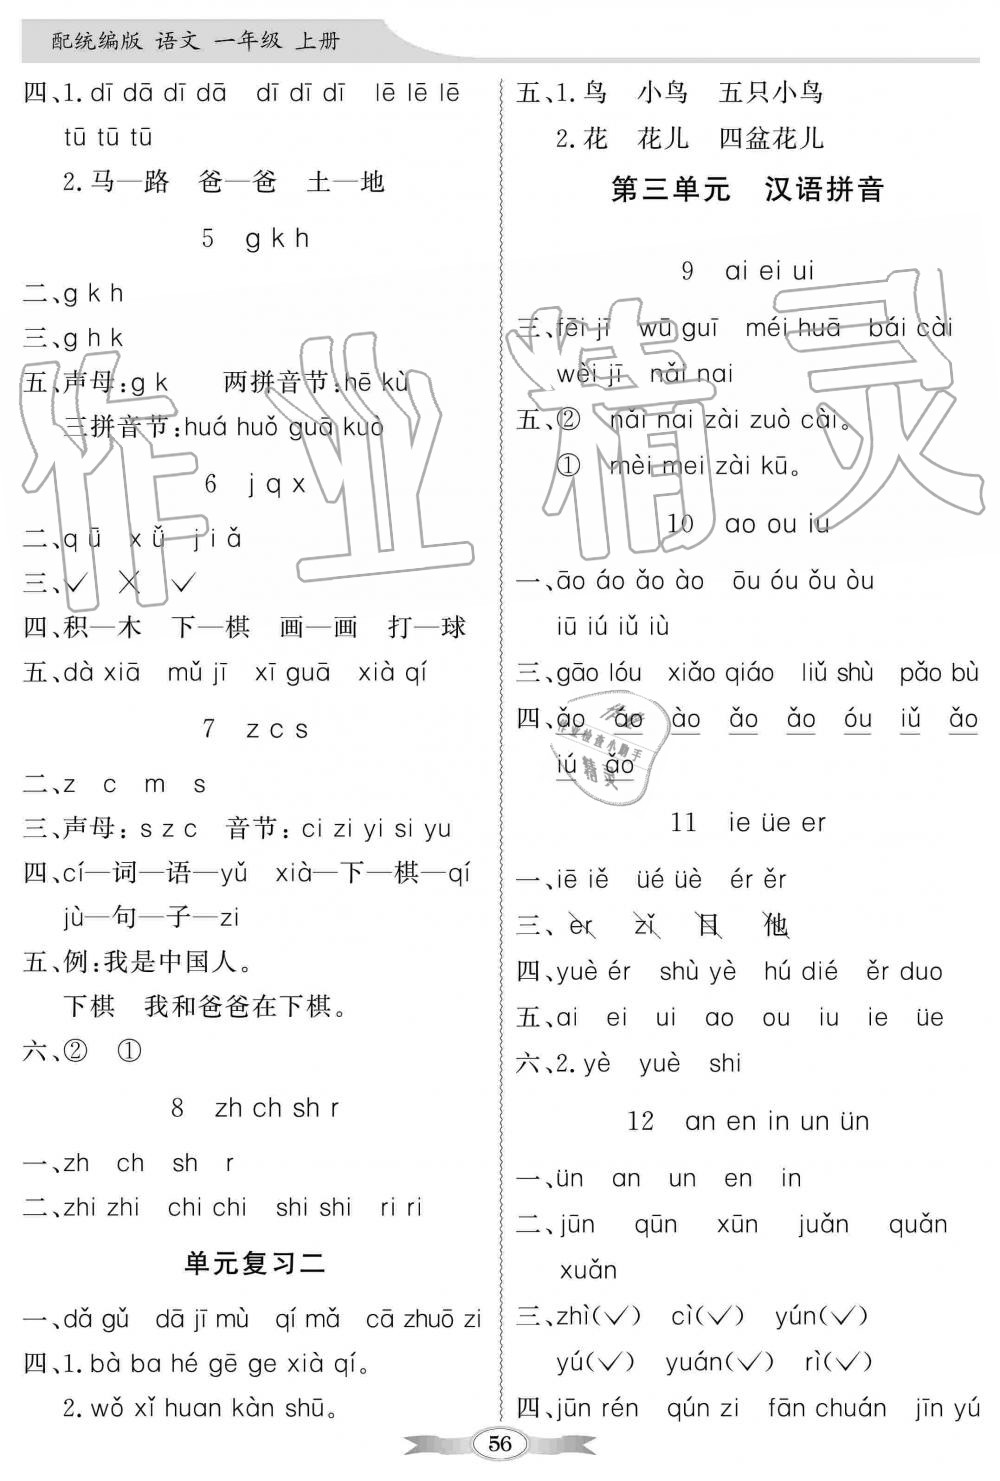 配统编版 语文 一年级 上册
四、1. dī dā dī dā dī dī dī lē lē lē
tū tū tū
2. 马—路 爸—爸 土—地
5 g k h
二、g k h
三、g h k
五、声母:g k 两拼音节:hē kù
三拼音节:huá huǒ guā kuò
6 j q x
二、q ǖ x ǚ j i ǎ
三、✓ ╳ ✓
四、积—木 下—棋 画—画 打—球
五、dà xiā mǔ jī xī guā xià qí
7 z c s
二、z c m s
三、声母: s z c 音节: ci zi yi si yu
四、cí—词—语—yǔ xià—下—棋—qí
jù—句—子—zi
五、例:我是中国人。
下棋 我和爸爸在下棋。
六、② ①
8 zh ch sh r
一、zh ch sh r
二、zhi zhi chi chi shi shi ri ri
单元复习二
一、dǎ gǔ dā jī mù qí mǎ cā zhuō zi
四、1. bà ba hé gē ge xià qí。
2. wǒ xǐ huan kàn shū。
五、1. 鸟 小鸟 五只小鸟
2. 花 花儿 四盆花儿
第三单元 汉语拼音
9 ai ei ui
三、fēi jī wū guī méi huā bái cài
wèi jī nǎi nai
五、② nǎi nai zài zuò cài。
① mèi mei zài kū。
10 ao ou iu
一、āo áo ǎo ào ōu óu ǒu òu
iū iú iǔ iù
三、gāo lóu xiǎo qiáo liǔ shù pǎo bù
四、ǎo ào ào ǎo ǎo óu iǔ ǎo
iú ǎo
11 ie üe er
一、iē iě üé üè ér ěr
三、er zǐ 目 他
四、yuè ér shù yè hú dié ěr duo
五、ai ei ui ao ou iu ie üe
六、2. yè yuè shi
12 an en in un ün
一、ün an un en in
二、jūn qūn xūn juǎn quǎn
xuǎn
三、zhì(✓) cì(✓) yún(✓)
yú(✓) yuán(✓) rì(✓)
四、jūn rén qún zi fān chuán jīn yú
56
作业精灵
作业检查小助手
精灵